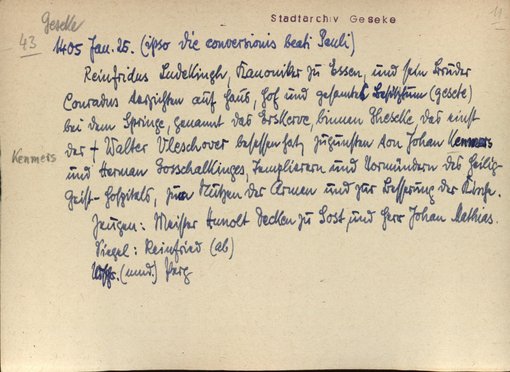 Geseke
Stadtarchiv Geseke
43
1405 Jan. 25. (ipso die conversionis beati Pauli)
Reinfridus Ludekingh, Kanoniker zu Essen, und sein Bruder
Conradus verzichten auf Haus, Hof und gesamtes Besitztum (gesete)
bei dem Springe, genannt das Erskerve, binnen Gheseke das einst
der † Walter Vleschover besessen hat, zugunsten von Johan Kemmers
Kemmers
und Herman Gosschalkinges, Templierern und Vormündern des Heilig-
Geist-Hospitals, zum Nutzen der Armen und zur Besserung der Kirche.
Zeugen: Meister Hunolt Decken zu Sost und Herr Johan Mathias.
Siegel: Reinfried (ab)
(nind.) Perg